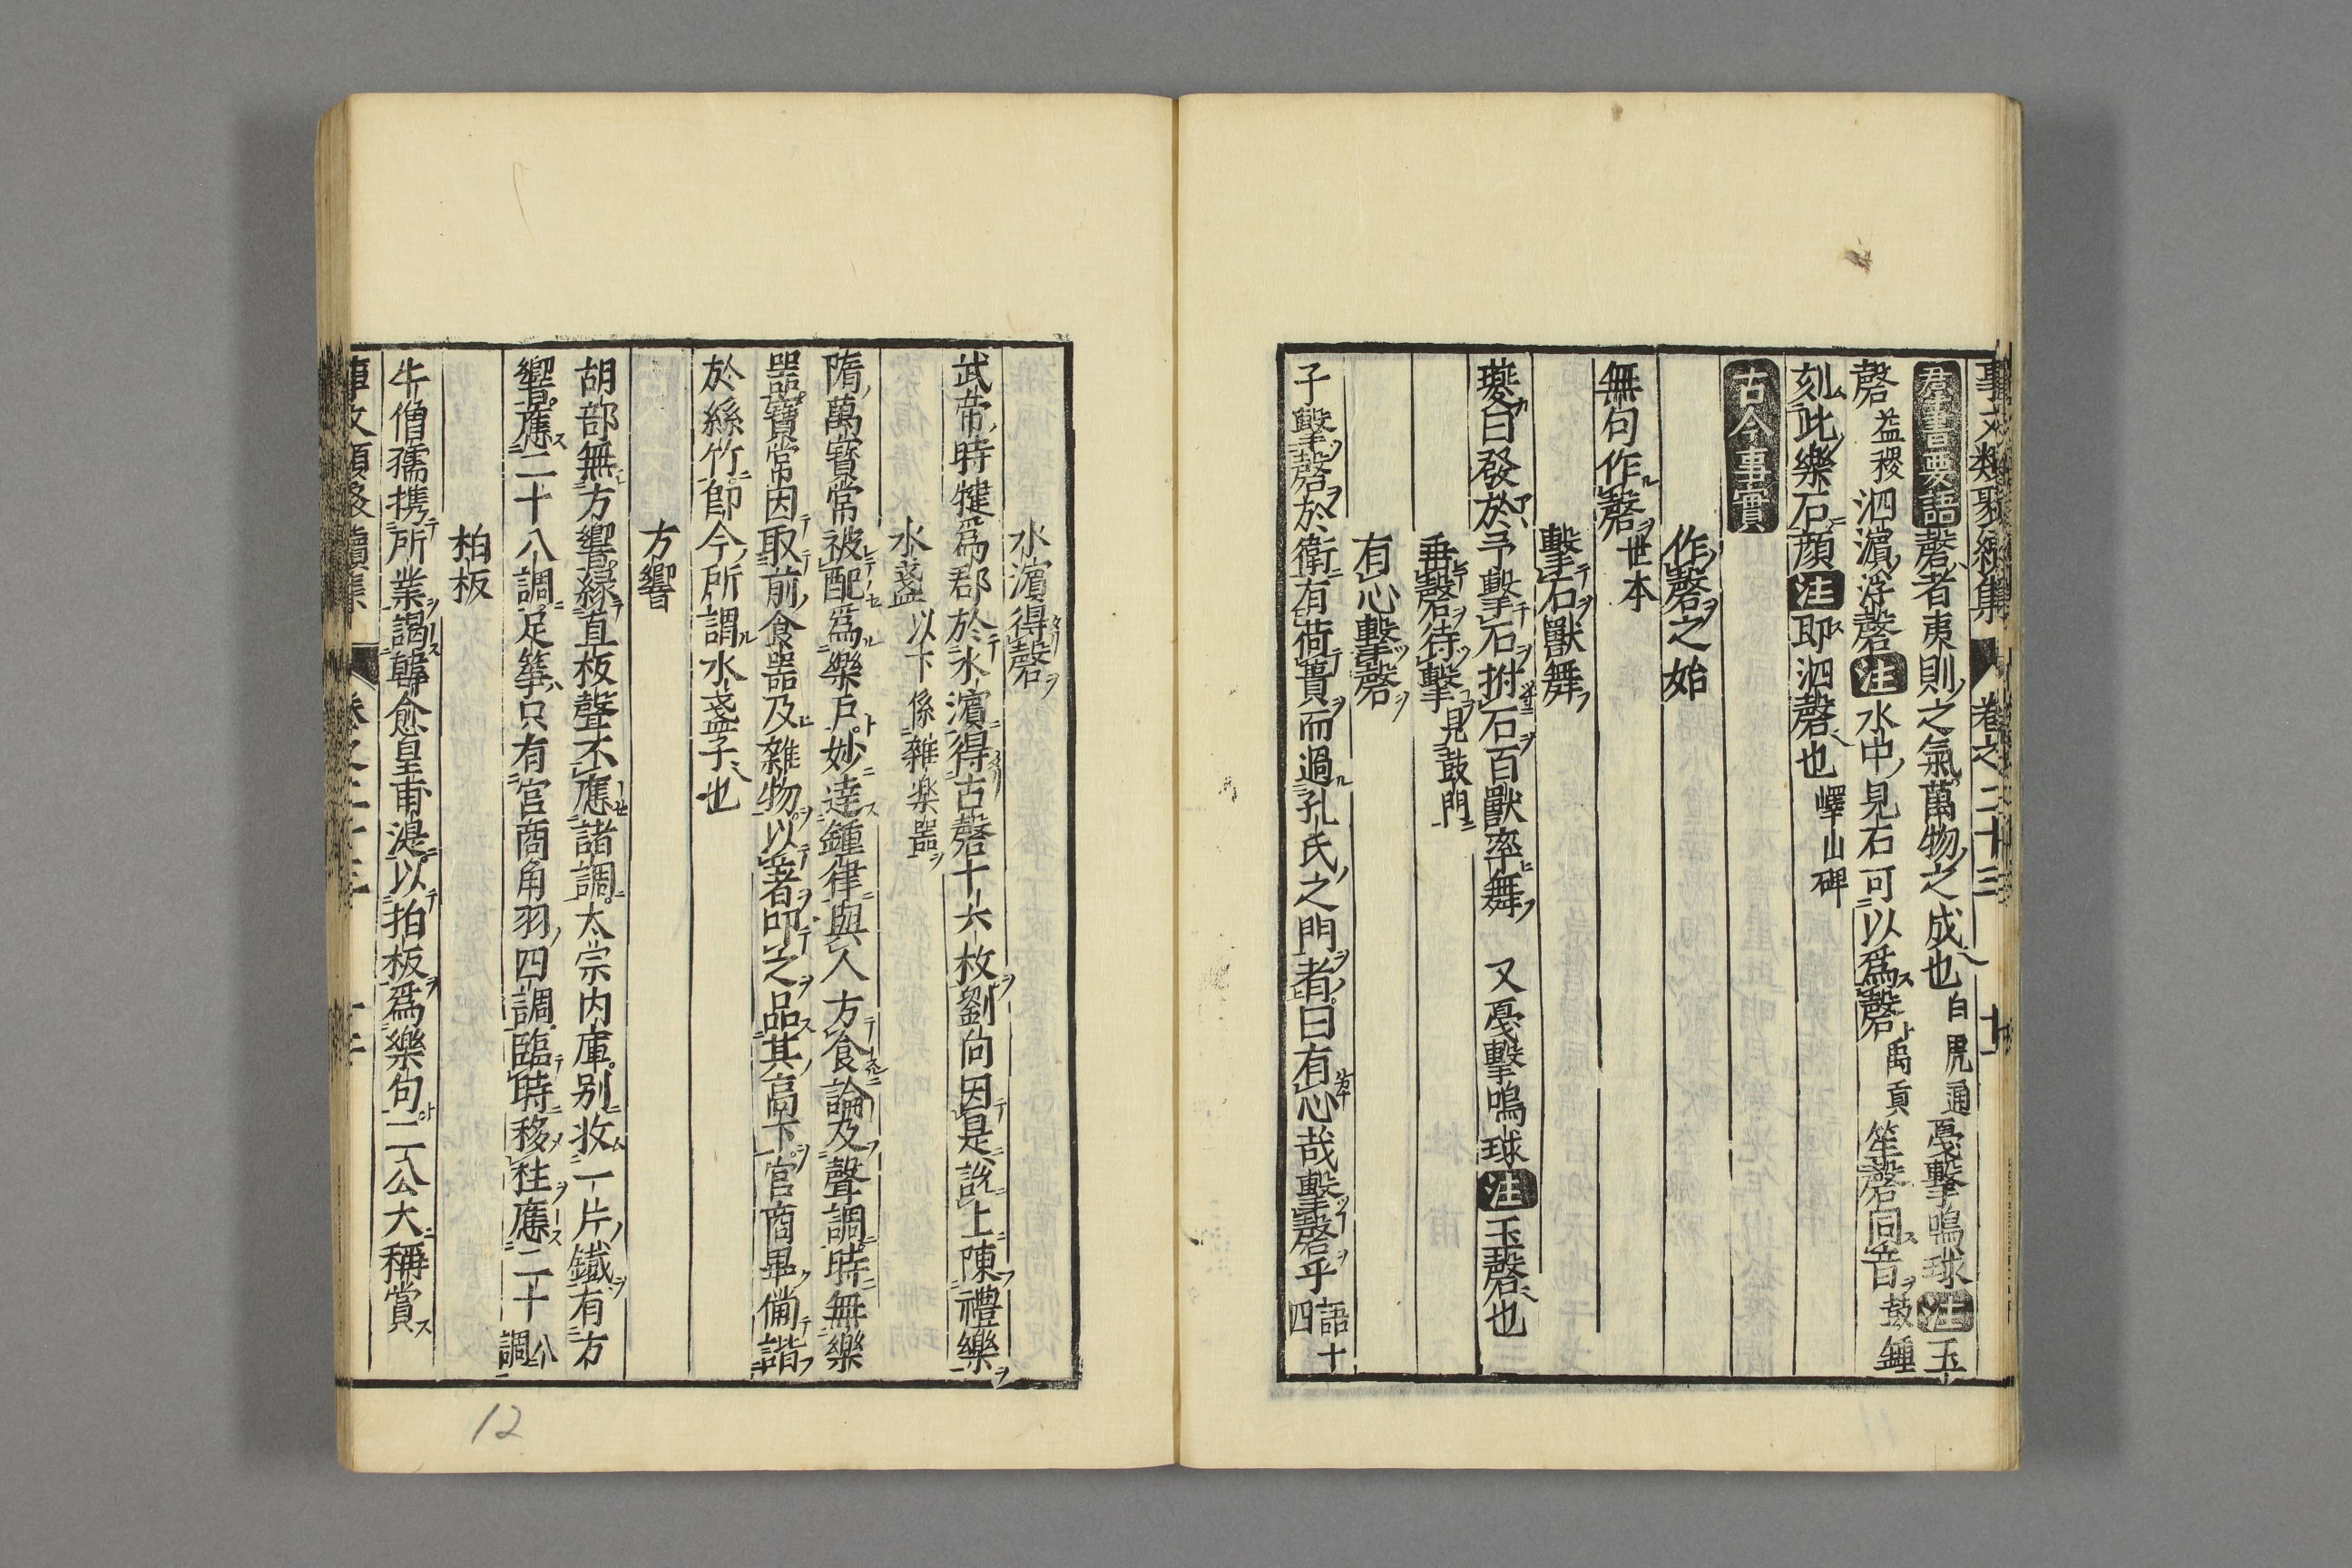 事文類聚續集 卷之二十三
群書要語 磬者夷則之氣萬物之成也 白虎通 戞擊鳴球 注 玉
磬 益稷 泗濵浮磬 注 水中見石可以爲磬 禹貢 笙磬同音 鼓鍾
刻此樂石顔 注 即泗磬也 嶧山碑
古今事實
作磬之始
無句作磬 世本
擊石獸舞
夔曰發於予擊石拊石百獸率舞 又戞擊鳴球 注 玉磬也
垂磬待擊 見鼓門
有心擊磬
子擊磬於衛有荷蕢而過孔氏之門者曰有心哉擊磬乎 語十四
水濵得磬
武帝時犍爲郡於水濵得古磬十六枚劉向因是說上陳禮樂
水盞 以下係雜樂器
隋萬寳常被配爲樂戶妙達鍾律與人方食論及聲調時無樂
器寶常因取前食器及雜物以著叩之品其高下宫商畢備諧
於絲竹即今所謂水盞子也
方響
胡部無方響緣直板聲不應諸調太宗内庫别收一片鐵有方
響應二十八調足箏只有宫商角羽四調臨時移柱應二十八調
柏板
牛僧孺携所業謁韓愈皇甫湜以拍板爲樂句二公大稱賞
12